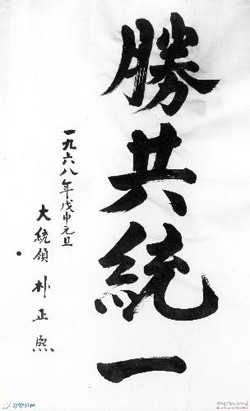 勝共統一
一九六八年戊申元旦
大統領 朴正熙